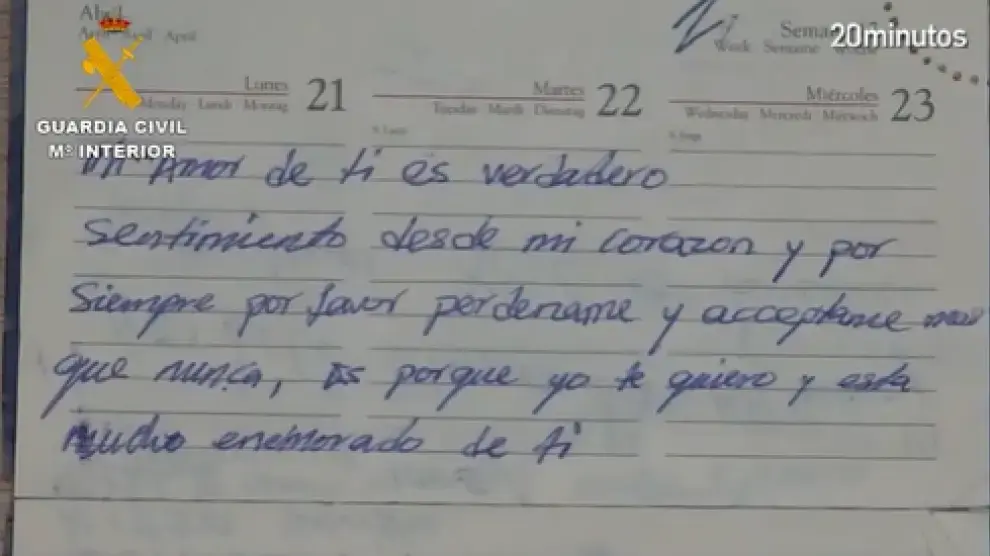 Abril
April
Semana 17
Week Semaine Woche
20minutos
Lunes 21
Monday Lundi Montag
Martes 22
Tuesday Mardi Dienstag
Miércoles 23
Wednesday Mercredi Mittwoch
GUARDIA CIVIL
Mº INTERIOR
Mi Amor de ti es verdadero
sentimiento desde mi corazon y por
siempre por favor perdename y acceptame mas
que nunca, es porque yo te quiero y esta
mucho enemorado de ti